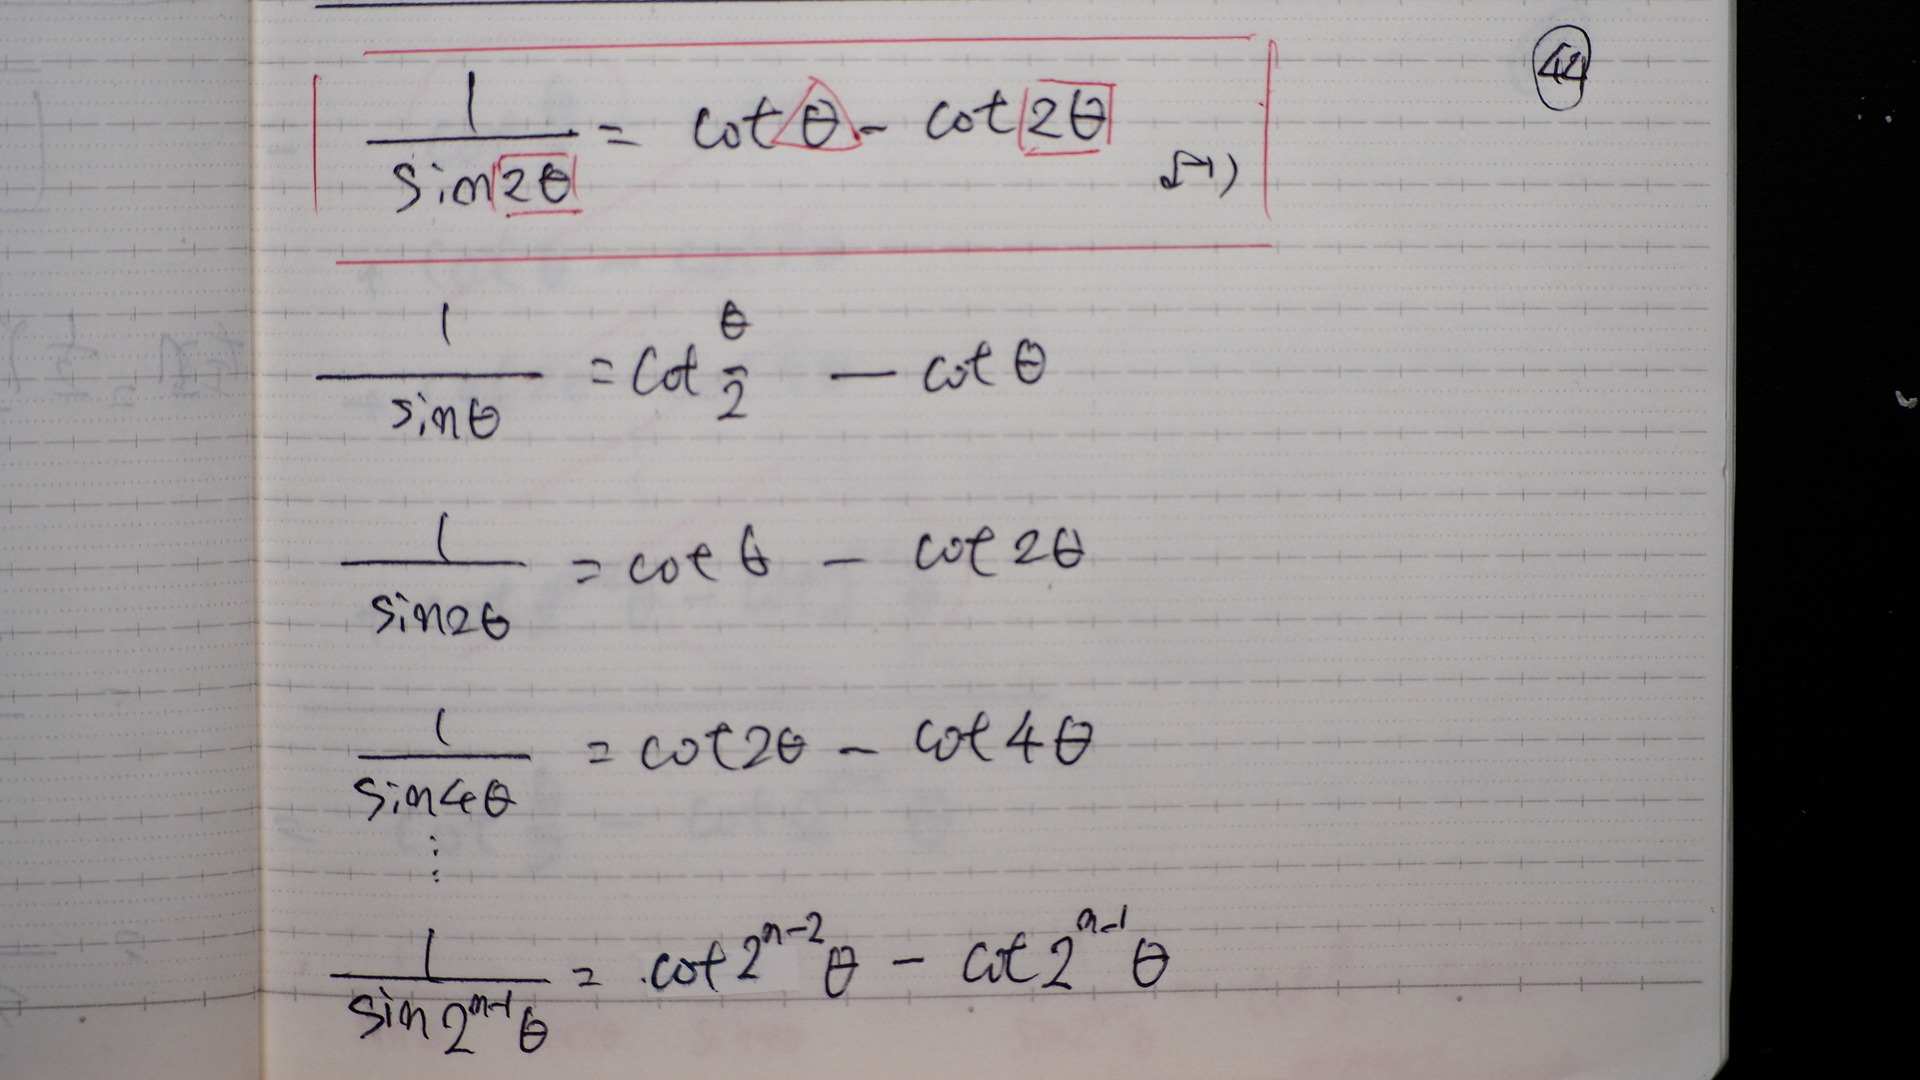 44
1/sin2θ = cotθ - cot2θ
1/sinθ = cot θ/2 - cotθ
1/sin2θ = cotθ - cot2θ
1/sin4θ = cot2θ - cot4θ
⋮
1/sin2^{n-1}θ = cot2^{n-2}θ - cot2^{n-1}θ